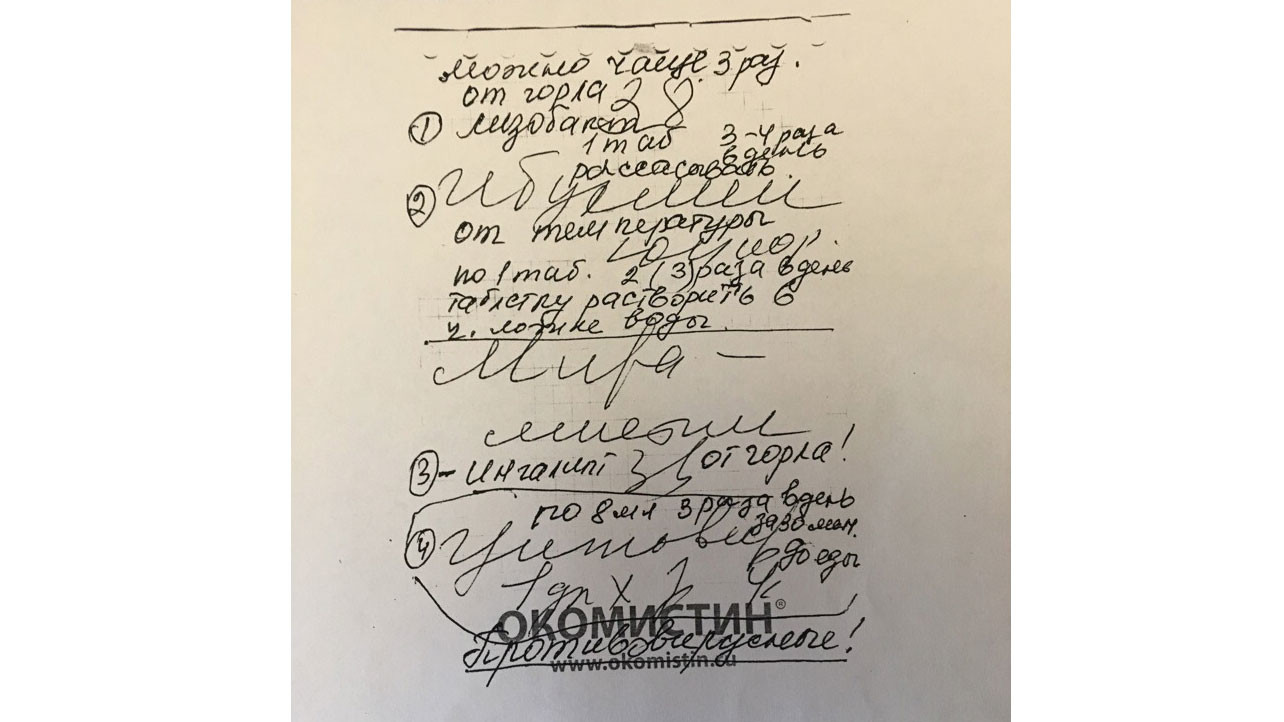 можно чаще 3 раз.
от горла
① лизобакт
1 таб 3-4 раза
в день
рассасывать.
②
от температуры
по 1 таб. 2 (3) раза в день
таблетку растворить в
ч. ложке воды.
Мира -
мистин
③ - Ингалипт от горла!
по 8 мл 3 раза в день
за 30 мин.
④ до еды
ОКОМИСТИН®
Противовирусные!
www.okomistin.ru